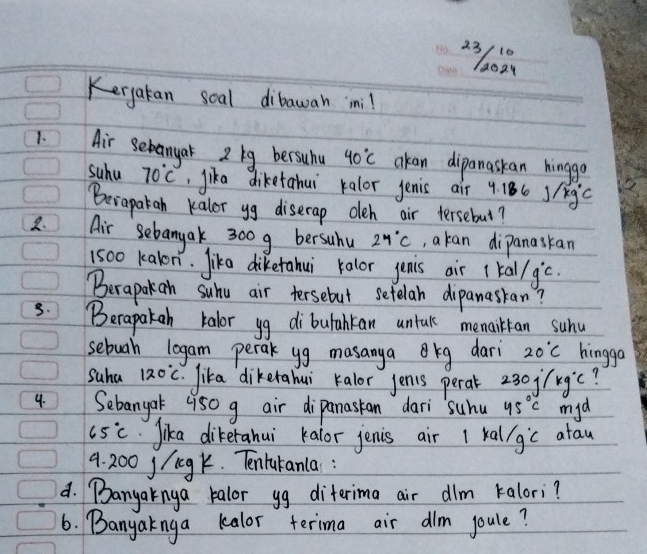 No. 23/10
Date /2024
Kerjakan soal dibawah ini!
1. Air sebanyak 2 kg bersuhu 40°C akan dipanaskan hingga
suhu 70°C, jika diketahui kalor jenis air 4.186 J/kg°C
Berapakah kalor yg diserap oleh air tersebut?
2. Air sebanyak 300 g bersuhu 24°C, akan dipanaskan
1500 kalori. Jika diketahui kalor jenis air 1 kal/g°C.
Berapakah suhu air tersebut setelah dipanaskan?
3. Berapakah kalor yg dibutuhkan untuk menaikkan suhu
sebuah logam perak yg masanya 8 kg dari 20°C hingga
suhu 120°C. Jika diketahui kalor jenis perak 230 j/kg°C?
4. Sebanyak 450 g air dipanaskan dari suhu 45°C mjd
65°C. Jika diketahui kalor jenis air 1 kal/g°C atau
4.200 j/kg K. Tentukanla :
a. Banyaknya kalor yg diterima air dlm kalori?
b. Banyaknya kalor terima air dlm joule?